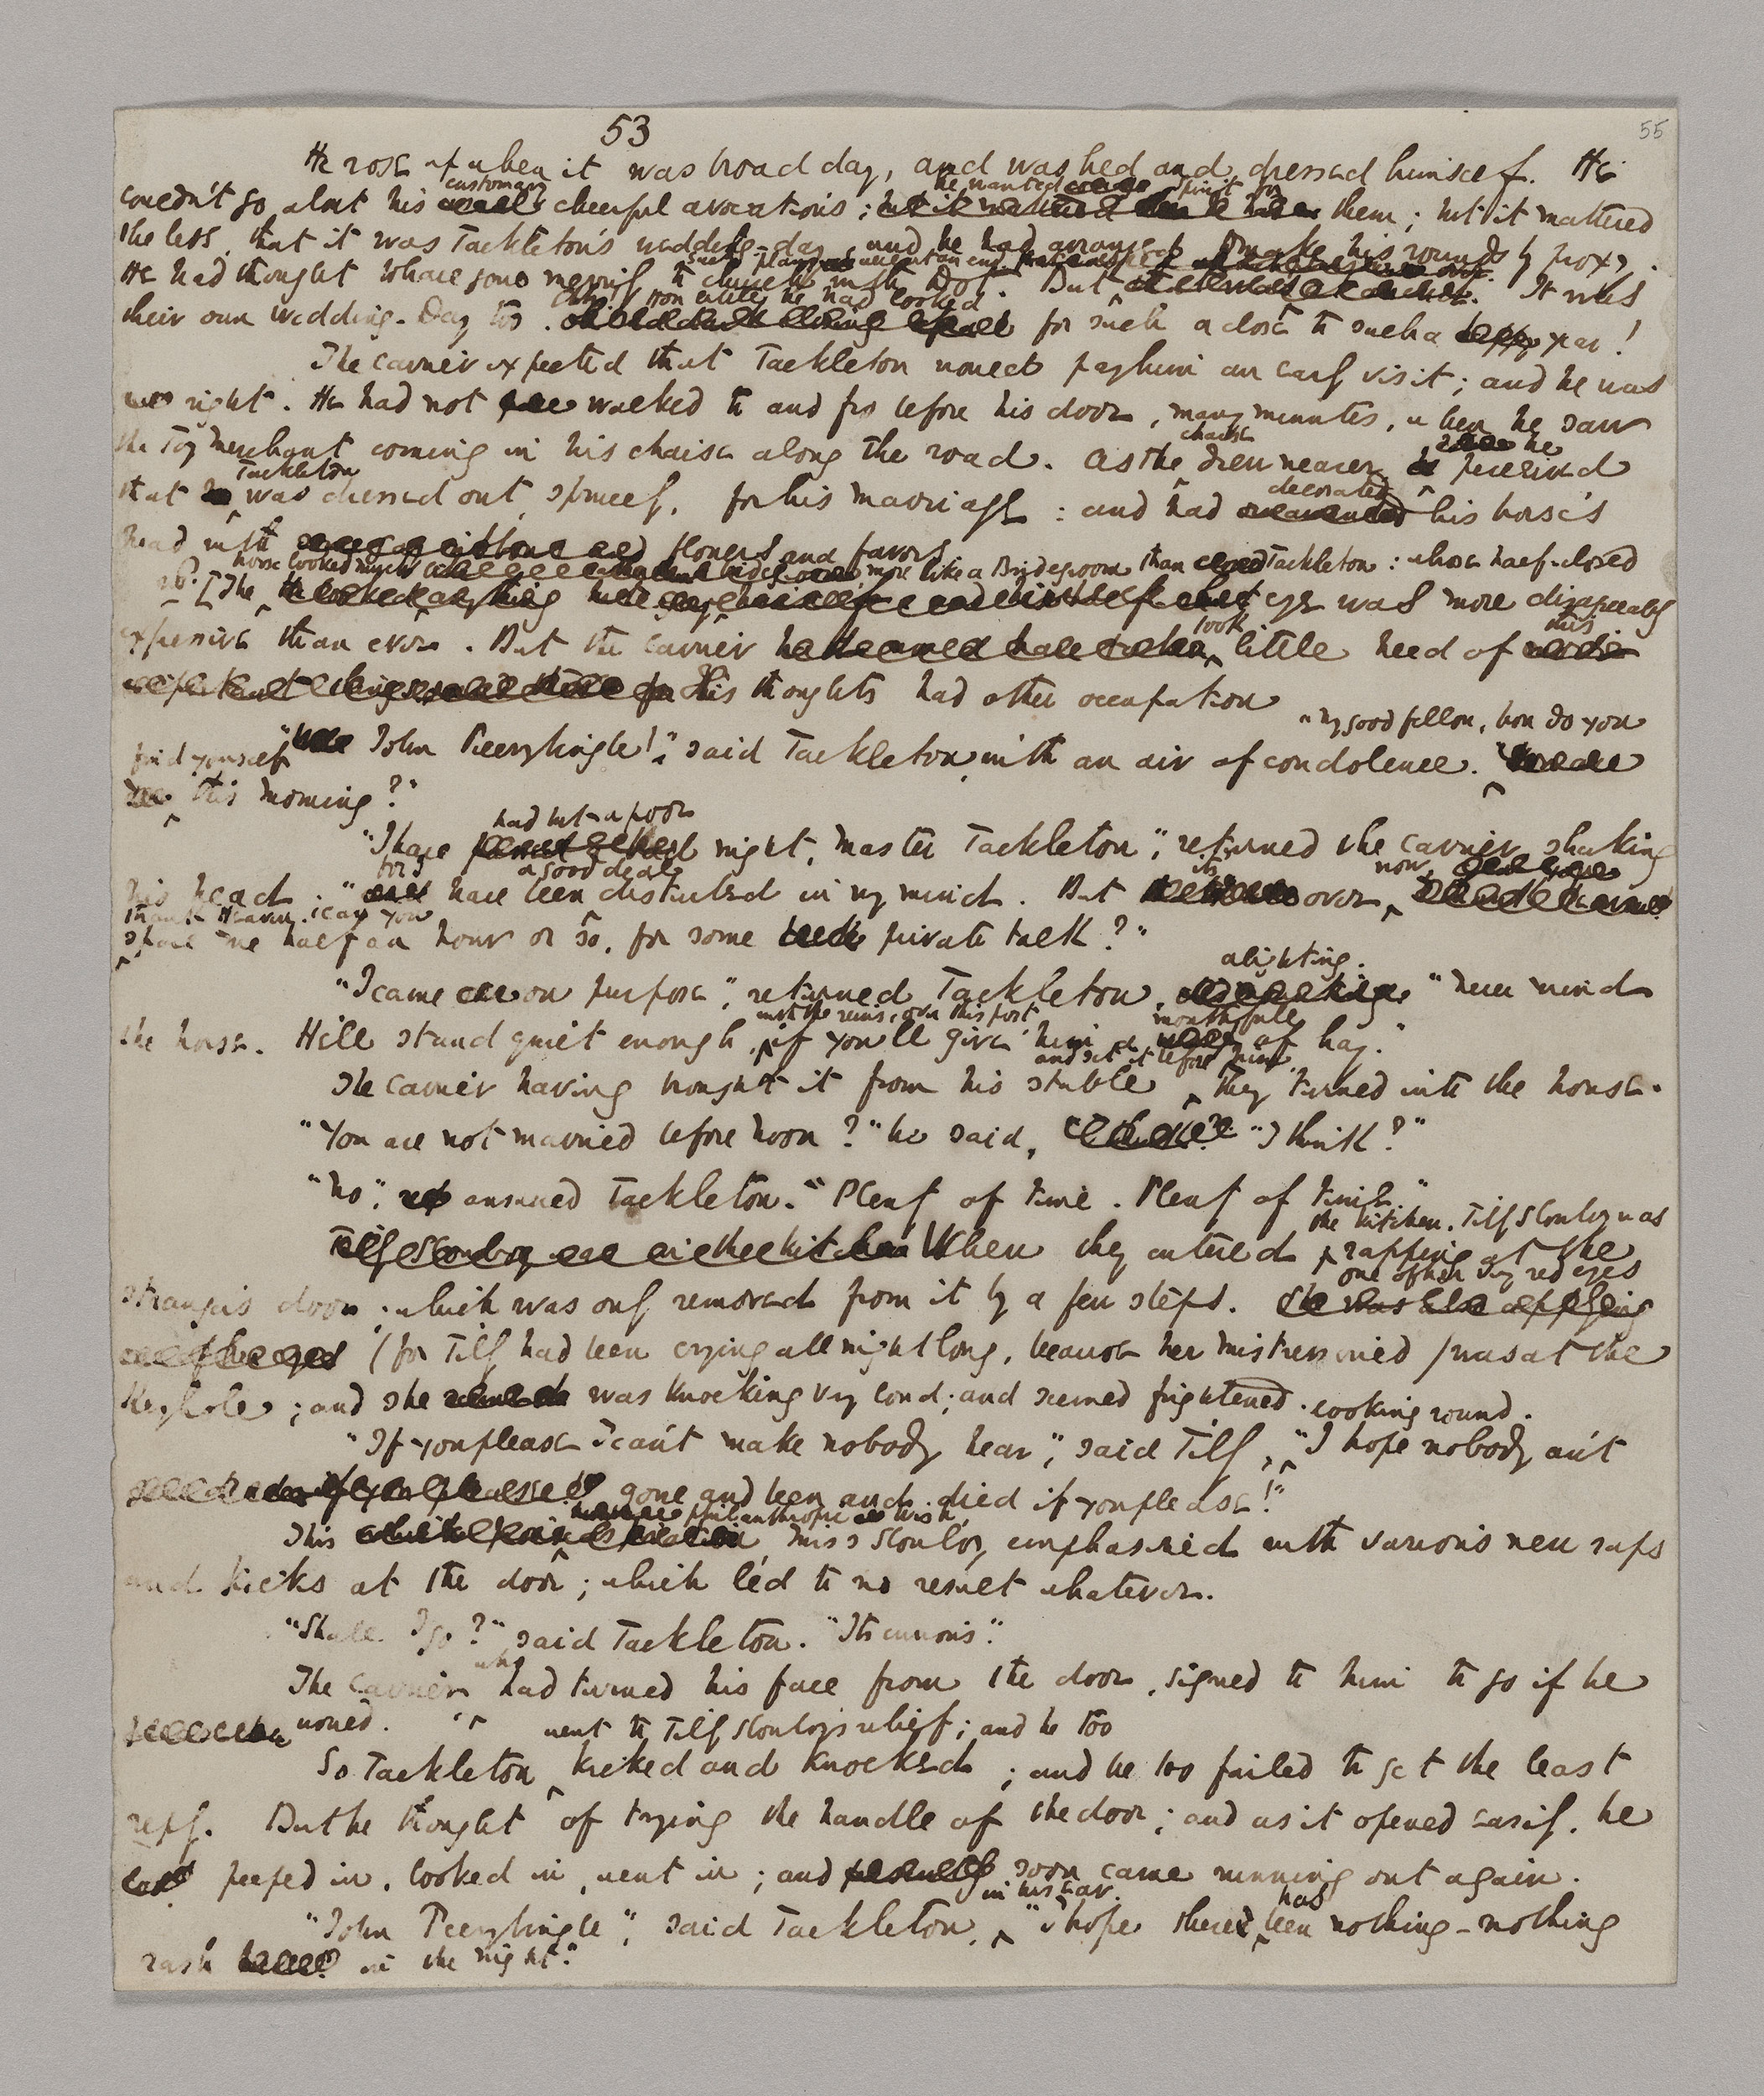 53
55
He rose up when it was broad day, and washed and dressed himself. He
customary he wanted spirit for
couldn't go about his cheerful avocations; them; but it mattered
the less, that it was Tackleton's wedding-day, and he had arranged to make his rounds by proxy.
such plans were at an end.
He had thought to have gone merrily to church with Dot. But It was
how little he had looked
their own wedding-Day too. for such a close to such a year!
The carrier expected that Tackleton would pay him an early visit; and he was
right. He had not walked to and fro before his door, many minutes, when he saw
the Toy merchant coming in his chaise along the road. As the chaise drew nearer, he perceived
that Tackleton was dressed out, sprucely, for his marriage: and had decorated his horse's
head with flowers and favors.
horse looked much more like a Bridegroom than Tackleton: whose half-closed
[The eye was more disagreeably
expressive than ever. But the carrier took little heed of this
His thoughts had other occupation
"My good fellow, how do you
"John Peerybingle!" said Tackleton, with an air of condolence.
find yourself this morning?"
"I have had but a poor night, Master Tackleton," returned the carrier, shaking
his head: "for I have been a good deal disturbed in my mind. But it's over now,
thank Heaven. Can you
spare me half an hour or so, for some private talk?"
"I came on purpose," returned Tackleton, alighting. "Never mind
the horse. He'll stand quiet enough, with the reins over this post, if you'll give him a mouthful of hay."
The carrier having brought it from his stable and set it before him, they turned into the house.
"You are not married before noon?" he said, "I think?"
"No," answered Tackleton. "Plenty of time. Plenty of time."
When they entered the kitchen, Tilly Slowboy was rapping at the
Stranger's door; which was only removed from it by a few steps. one of her very red eyes
(for Tilly had been crying all night long, because her mistress cried) was at the
Keyhole; and she was knocking very loud; and seemed frightened.
looking round.
"If you please I can't make nobody hear," said Tilly, "I hope nobody an't
gone and been and died if you please!"
This philanthropic wish, Miss Slowboy emphasised with various new raps
and kicks at the door; which led to no result whatever.
"Shall I go?" said Tackleton. "It's curious."
The Carrier who had turned his face from the door, signed to him to go if he
would.
went to Tilly Slowboy's relief; and he too
So Tackleton kicked and knocked; and he too failed to get the least
reply. But he thought of trying the handle of the door; and as it opened easily, he
peeped in, looked in, went in; and soon came running out again.
"John Peerybingle," said Tackleton, in his ear. "I hope there has been nothing - nothing
rash in the night."